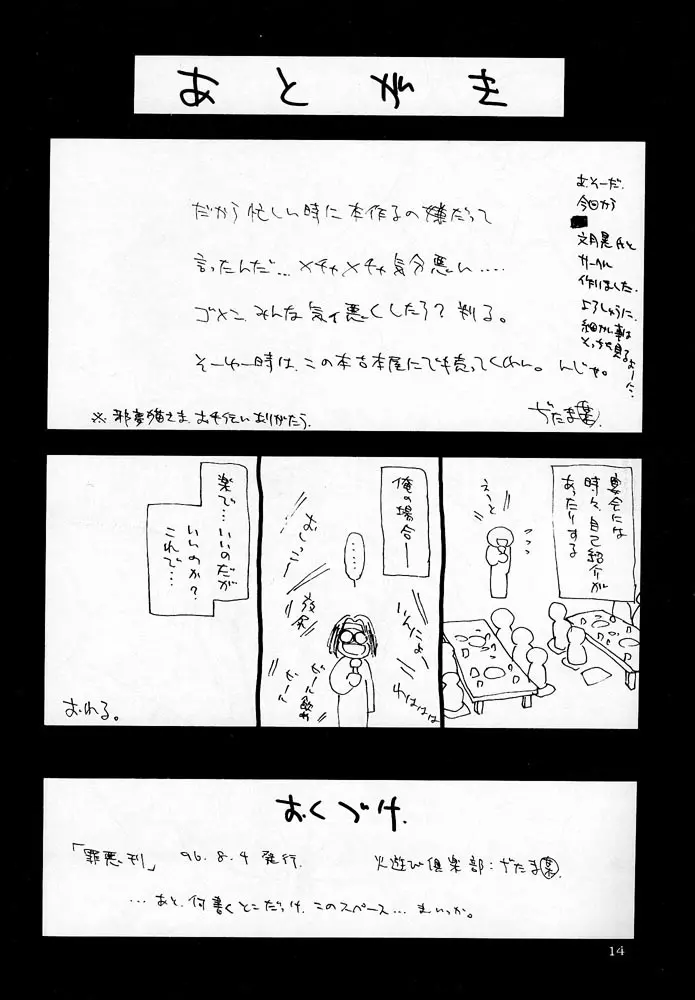 あとがき
だから忙しい時に本作るの嫌だって
言ったんだ…メチャメチャ気分悪い‥‥
ゴメン、みんな気ィ悪くしたろ？判る。
そーゆー時は、この本古本屋にでも売ってくれい。んじゃ。
ぢたま㊙
※邪夢猫さま、お手伝いありがとう。
お、そーだ。
今回から
文月晃氏と
サークル
作りました。
よろしゅうに。
細かい事は
そっちを見るよーに…
宴会には
時々、自己紹介が
あったりする
えーと
俺の場合―
……
おしっこー
いんにょー
わはははは
ビール飲め
ビール
楽で…いいのだが
いいのか？
これで…
おわる。
おくづけ
「罪悪刊」 96.8.4 発行
火遊び倶楽部：ぢたま
…あと、何書くとこだっけ、このスペース…まいっか。
14